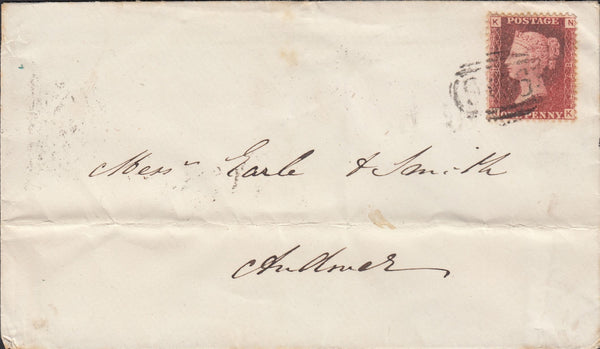 K N
POSTAGE
PENNY
K
Messrs Earle & Smith
Andover